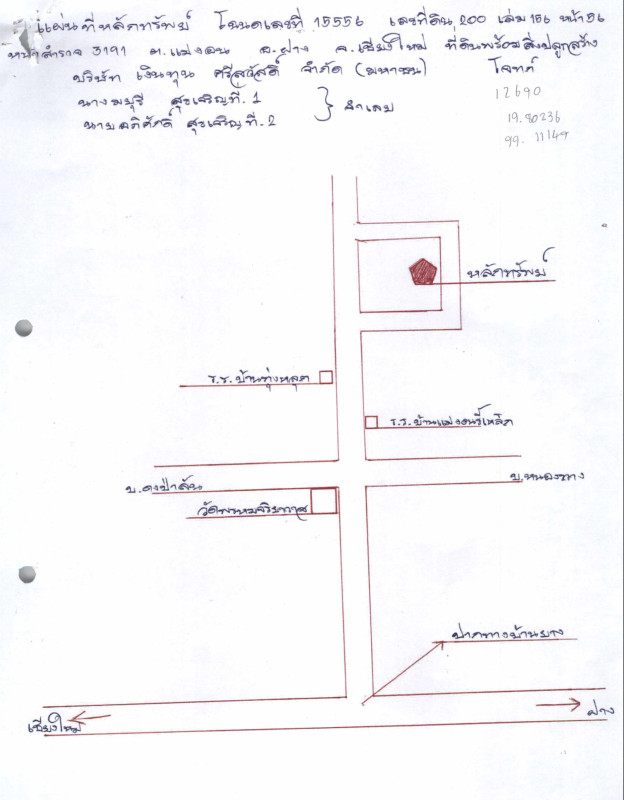 แผนที่หลักทรัพย์ โฉนดเลขที่ 15556 เลขที่ดิน 200 เล่ม 156 หน้า 56
หน้าสำรวจ 3191 ต.แม่งอน อ.ฝาง จ.เชียงใหม่ ที่ดินพร้อมสิ่งปลูกสร้าง
บริษัท เงินทุน ศรีสวัสดิ์ จำกัด (มหาชน) โจทก์
นาง สุขเจริญ ที่.1
นาย สุขเจริญ ที่.2
จำเลย
12690
19.80236
99.11149
หลักทรัพย์
ร.ร.บ้านทุ่งหลุก
ร.ร.บ้านแม่งอนขี้เหล็ก
บ.ดงป่าลัน
บ.หนองขวาง
ปากทางบ้านยาง
เชียงใหม่
ฝาง